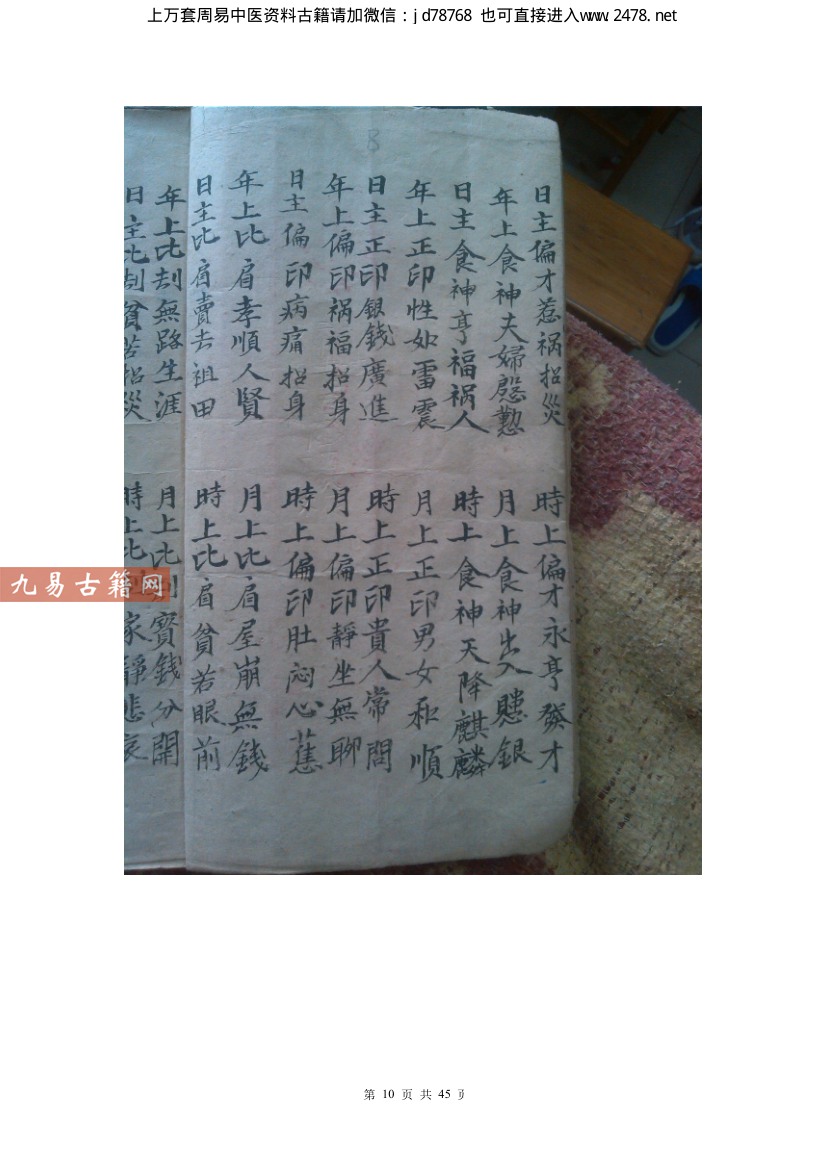 上万套周易中医资料古籍请加微信：jd78768 也可直接进入www.2478.net
8
日主偏才惹祸招災 時上偏才永亨發才
年上食神夫婦慇懃 月上食神出入騐銀
日主食神亨福祸人 時上食神天降麒麟
年上正印性如雷震 月上正印男女和順
日主正印银錢廣進 時上正印貴人常問
年上偏印祸福招身 月上偏印靜坐無聊
日主偏印病痛招身 時上偏印肚闷心蕉
年上比肩孝順人賢 月上比肩屋崩無錢
日主比肩賣去祖田 時上比肩貧若眼前
年上比刮無路生涯 月上比寳錢分開
日主比刮貧苦招災 時上比家靜悲哀
九易古籍网
第 10 页 共 45 页